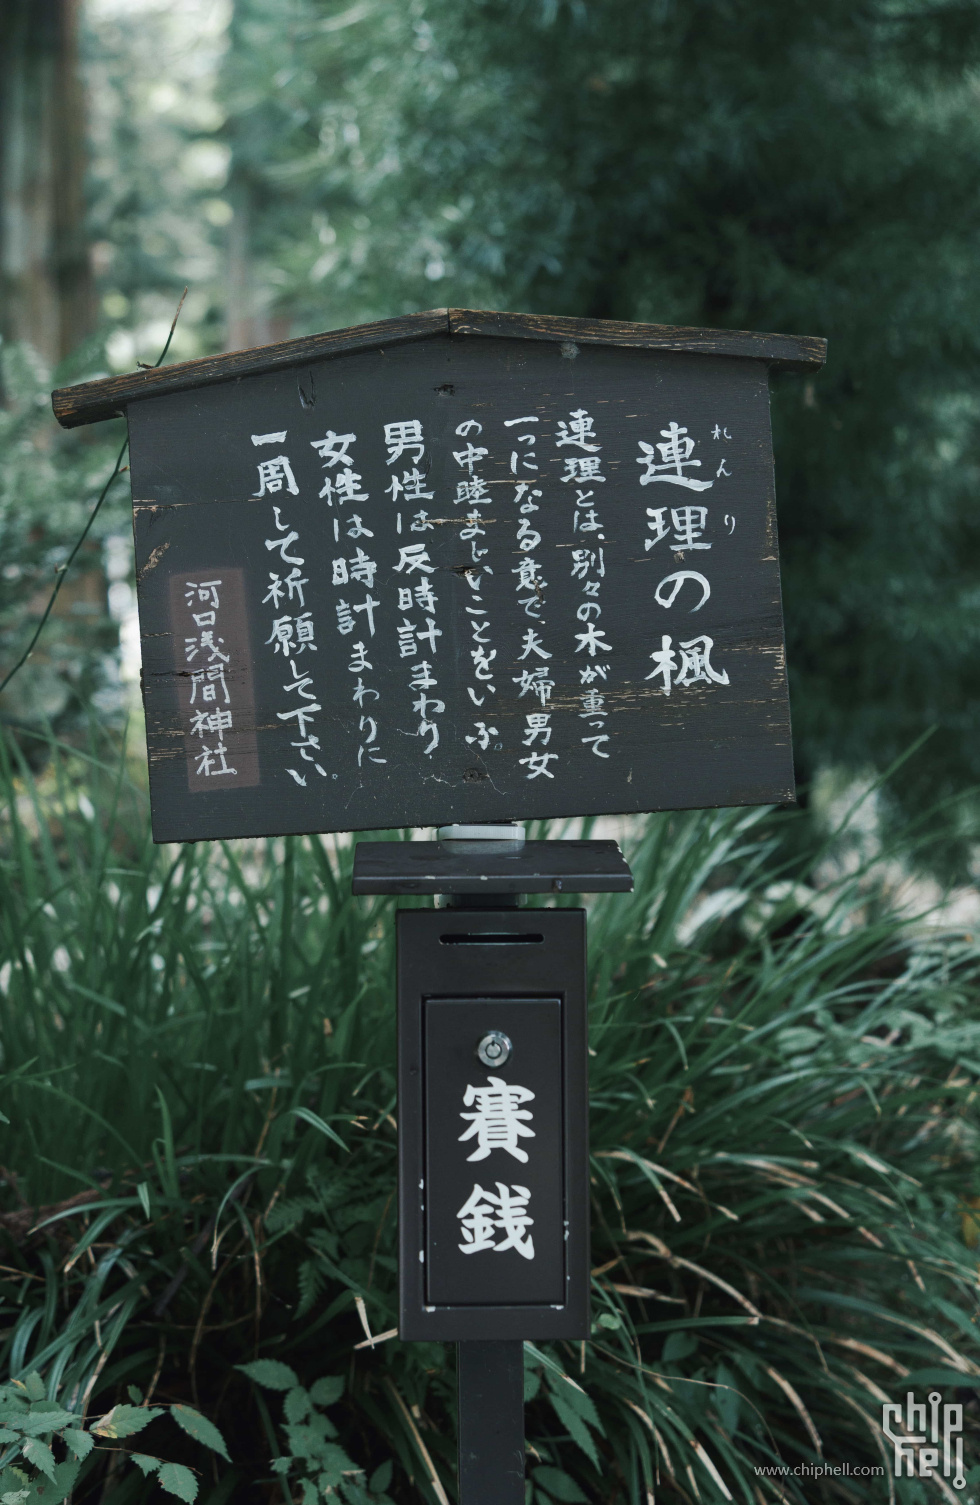 連理の楓
れんり
連理とは、別々の木が重って
一つになる意で、夫婦男女
の中睦まじいことをいふ。
男性は反時計まわり、
女性は時計まわりに
一周して祈願して下さい。
河口浅間神社
賽銭
www.chiphell.com
chip hell